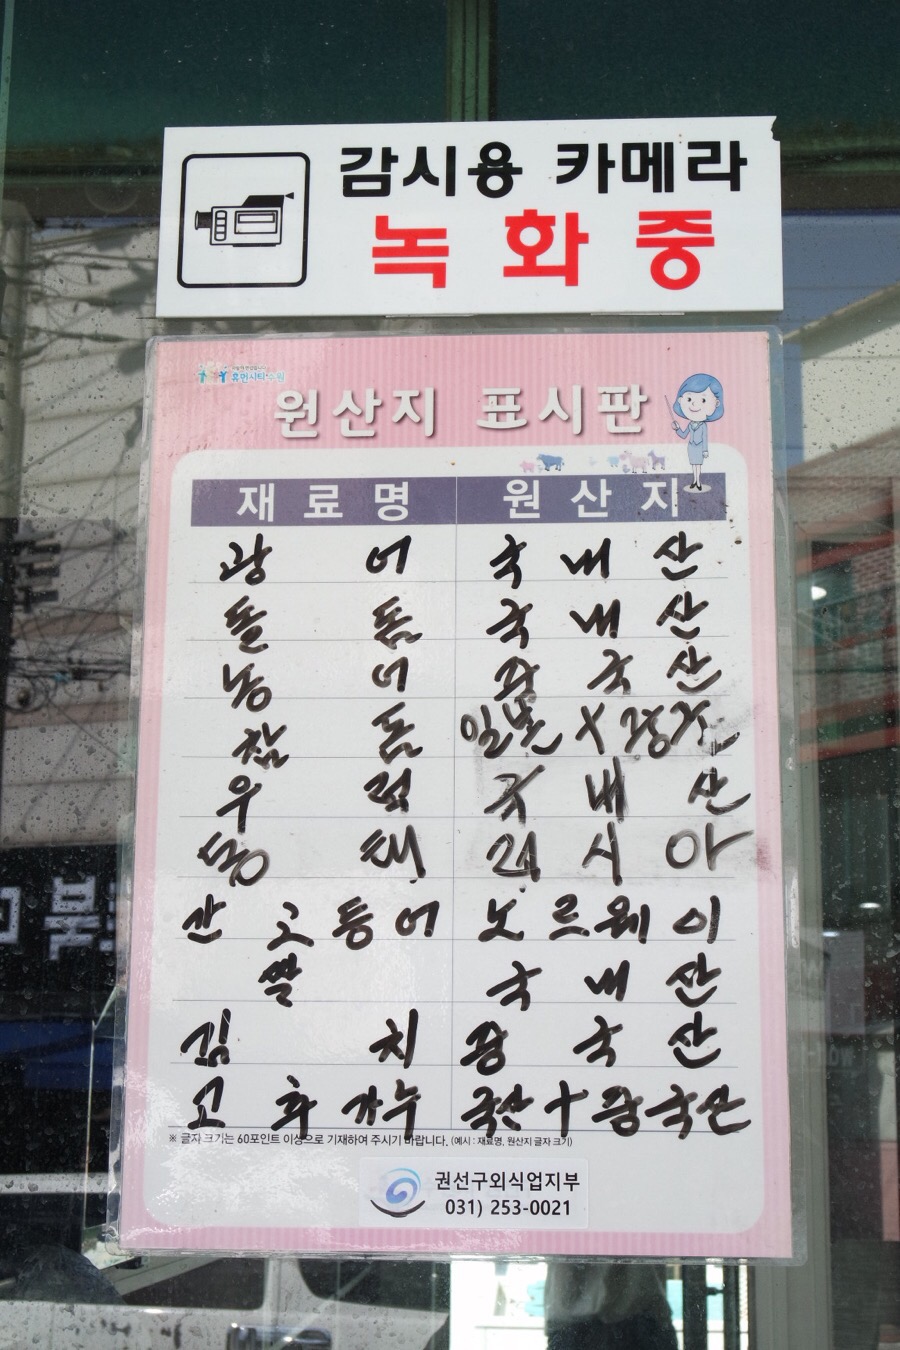 감시용 카메라
녹화중
휴먼시티 수원
원산지 표시판
재료명 원산지
광어 국내산
돌돔 국내산
농어 중국산
참돔 일본
우럭 국내산
동태 러시아
산고등어 노르웨이
쌀 국내산
김치 중국산
고추가루 국산+중국산
※ 글자 크기는 60포인트 이상으로 기재하여 주시기 바랍니다. (예시 : 재료명, 원산지 글자 크기)
권선구외식업지부
031) 253-0021